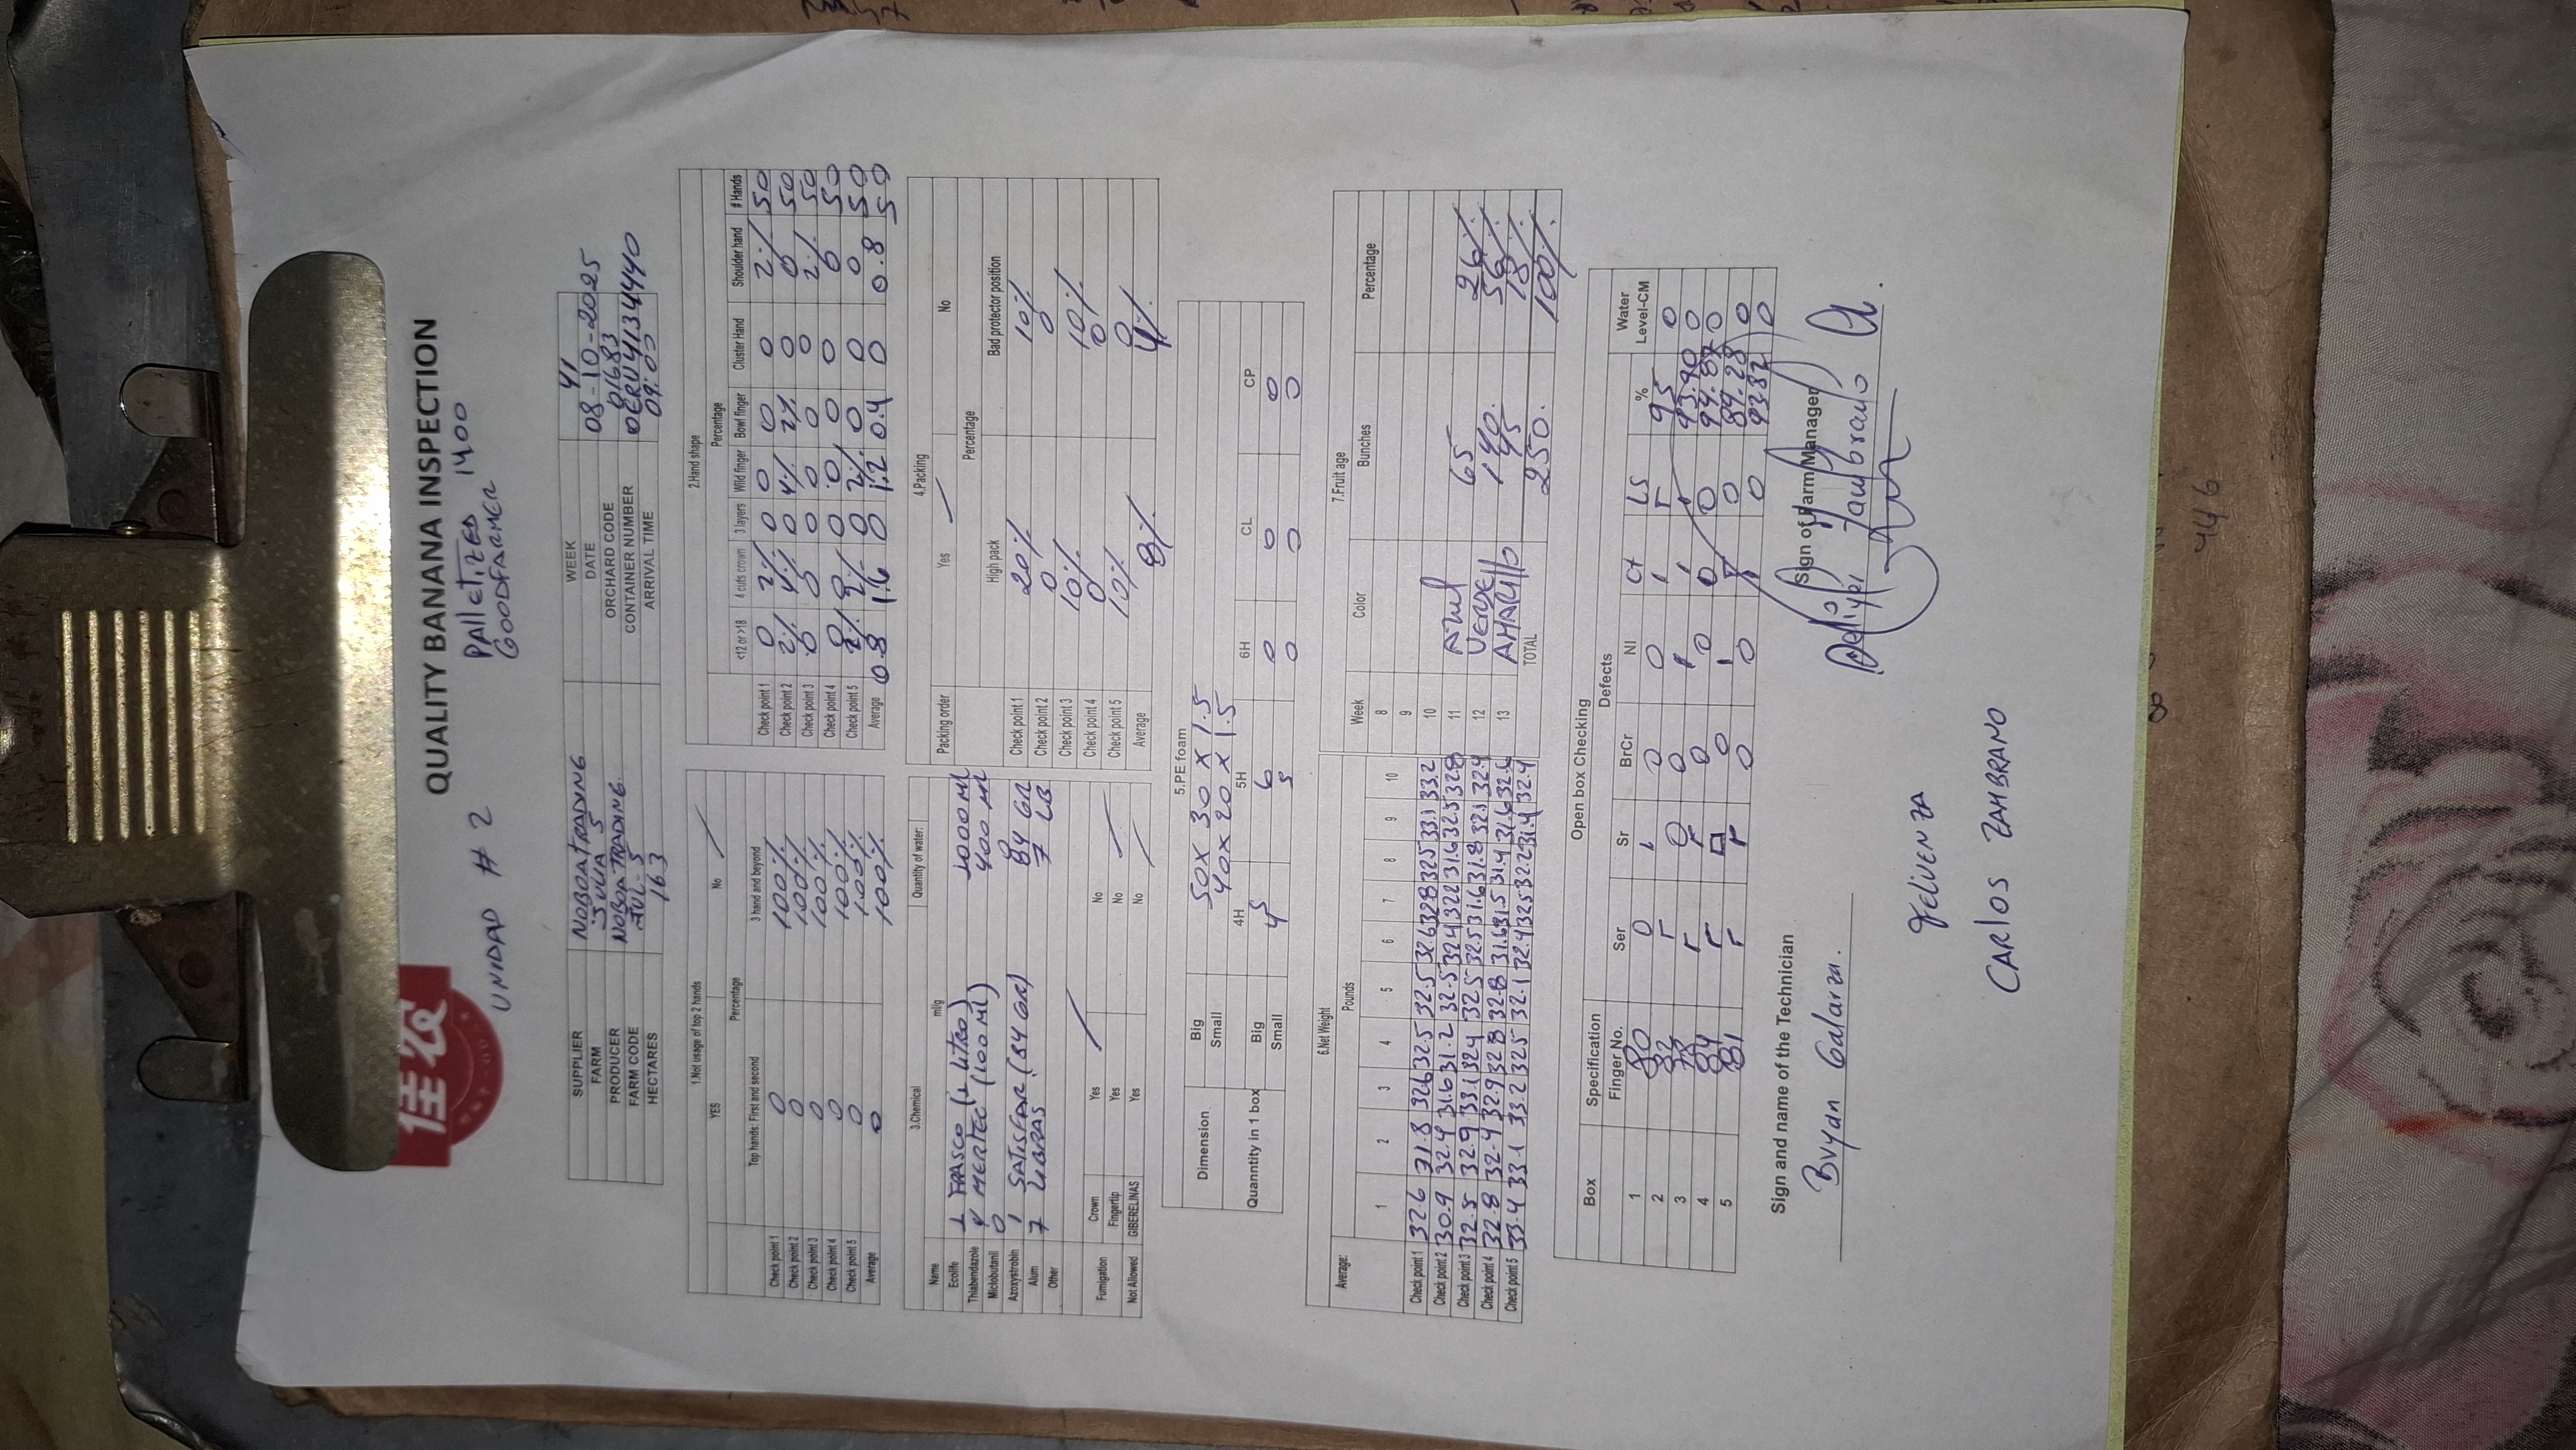 佳农
QUALITY BANANA INSPECTION
UNIDAD # 2
PAllETIZED 1400
GOODFARMER
SUPPLIER NOBOATRADING WEEK 41
FARM JULIA 5 DATE 08-10-2025
PRODUCER NOBOA TRADING. ORCHARD CODE 01683
FARM CODE JUL-5 CONTAINER NUMBER OERU4134440
HECTARES 163 ARRIVAL TIME 09:00
1.Not usage of top 2 hands
YES No /
Percentage
Top hands: First and second 3 hand and beyond
Check point 1 0 100%
Check point 2 0 100%
Check point 3 0 100%
Check point 4 0 100%
Check point 5 0 100%
Average 0 100%
2.Hand shape
Percentage
<12 or >18 4 cuts crown 3 layers Wild finger Bowl finger Cluster Hand Shoulder hand # Hands
Check point 1 0 2% 0 0 0 0 2% 50
Check point 2 2% 4% 0 4% 2% 0 0 50
Check point 3 0 0 0 0 0 0 2% 50
Check point 4 0 0 0 0 0 0 0 50
Check point 5 2% 2% 0 2% 0 0 0 50
Average 0.8 1.6 0 1.2 0.4 0 0.8 50
3.Chemical Quantity of water:
Name ml/g
Ecolife 1 FRASCO (1 LITRO) 1000 Ml
Thiabendazole 4 MERTEC (100 Ml) 400 Ml
Miclobutanil 0 0
Azoxystrobin 1 SATISFAR (84 GR) 84 GR
Alum 7 LIBRAS 7 LB
Other
Fumigation Crown Yes / No
Fingertip Yes No /
Not Allowed GIBERELINAS Yes No /
4.Packing
Packing order Yes / No
Percentage
High pack Bad protector position
Check point 1 20% 10%
Check point 2 0 0
Check point 3 10% 10%
Check point 4 0 0
Check point 5 10% 0
Average 8% 4%
5.PE foam
Dimension Big 50 x 30 x 1.5
Small 40x20 x 1.5
4H 5H 6H CL CP
Quanntity in 1 box Big 5 6 0 0 0
Small 4 5 0 0 0
6.Net Weight
Average: Pounds
1 2 3 4 5 6 7 8 9 10
Check point 1 32.6 31.8 32.6 32.5 32.5 32.6 32.8 32.5 33.1 33.2
Check point 2 30.9 32.4 31.6 31.2 32.5 32.4 32.2 31.6 32.5 32.8
Check point 3 32.5 32.9 33.1 32.4 32.5 32.5 31.6 31.8 32.1 32.4
Check point 4 32.8 32.4 32.9 32.8 32.8 31.6 31.5 31.4 31.6 32.6
Check point 5 33.4 33.1 33.2 32.5 32.1 32.4 32.5 32.2 31.4 32.4
7.Fruit age
Week Color Bunches Percentage
8
9
10
11 Azul 65 26%
12 VERDE 140. 56%
13 AMARIllO 45 18%
TOTAL 250. 100%
Open box Checking
Box Specification Defects Water
Finger No. Ser Sr BrCr NI Ct LS % Level-CM
1 80 0 1 0 0 1 95 0
2 82 0 0 1 1 93.90 0
3 78 0 0 0 0 94.87 0
4 84 0 1 0 89.28 0
5 81 0 0 1 0 93.82 0
Sign and name of the Technician
Bryan Galarza.
Sign of Farm Manager
Zambrano
CARlOS ZAMBRANO
446